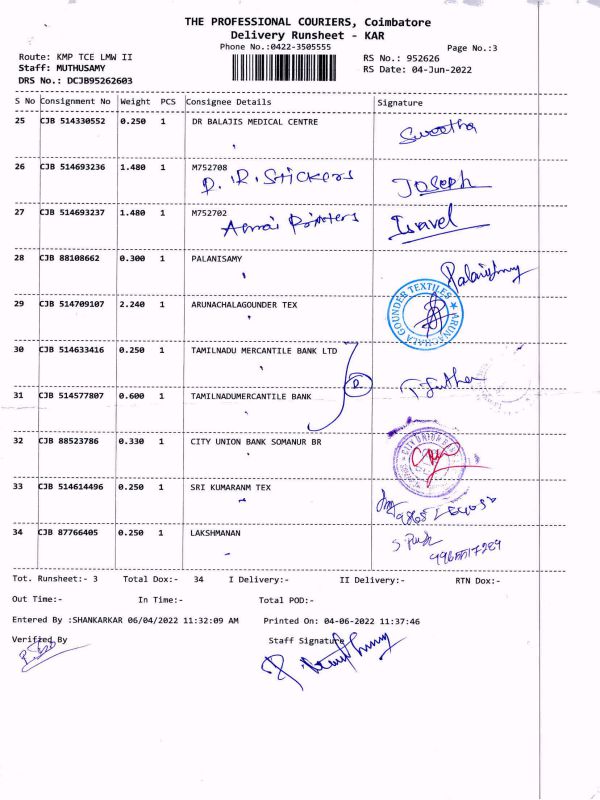 THE PROFESSIONAL COURIERS, Coimbatore
Delivery Runsheet - KAR
Phone No.:0422-3505555
Page No.:3
Route: KMP TCE LMW II
RS No.: 952626
Staff: MUTHUSAMY
RS Date: 04-Jun-2022
DRS No.: DCJB95262603
S No Consignment No Weight PCS Consignee Details Signature
25 CJB 514330552 0.250 1 DR BALAJIS MEDICAL CENTRE
Swetha
26 CJB 514693236 1.480 1 M752708
D. R. Stickers Joseph
27 CJB 514693237 1.480 1 M752702
Printers Isravel
28 CJB 88108662 0.300 1 PALANISAMY
29 CJB 514709107 2.240 1 ARUNACHALAGOUNDER TEX
ARUNACHALA GOUNDER TEXTILES
30 CJB 514633416 0.250 1 TAMILNADU MERCANTILE BANK LTD
31 CJB 514577807 0.600 1 TAMILNADUMERCANTILE BANK
32 CJB 88523786 0.330 1 CITY UNION BANK SOMANUR BR
CITY UNION
33 CJB 514614496 0.250 1 SRI KUMARANM TEX
34 CJB 87766405 0.250 1 LAKSHMANAN
Tot. Runsheet:- 3 Total Dox:- 34 I Delivery:- II Delivery:- RTN Dox:-
Out Time:- In Time:- Total POD:-
Entered By :SHANKARKAR 06/04/2022 11:32:09 AM Printed On: 04-06-2022 11:37:46
Verified By Staff Signature